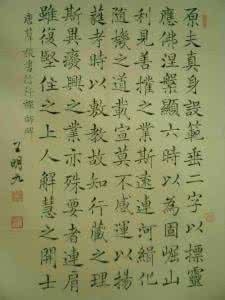 原夫真身設範垂二字以摽靈
應佛涅槃顯六時以為固崛山
利見善權之業斯遠連河緝化
隨機之道載宣莫不感運以揚
蕤得時以敷教故知行藏之理
斯異癈興之業亦殊要者連肩
雖復堅住之上人解慧之開士
唐薛稷書信行禪師碑
王明九